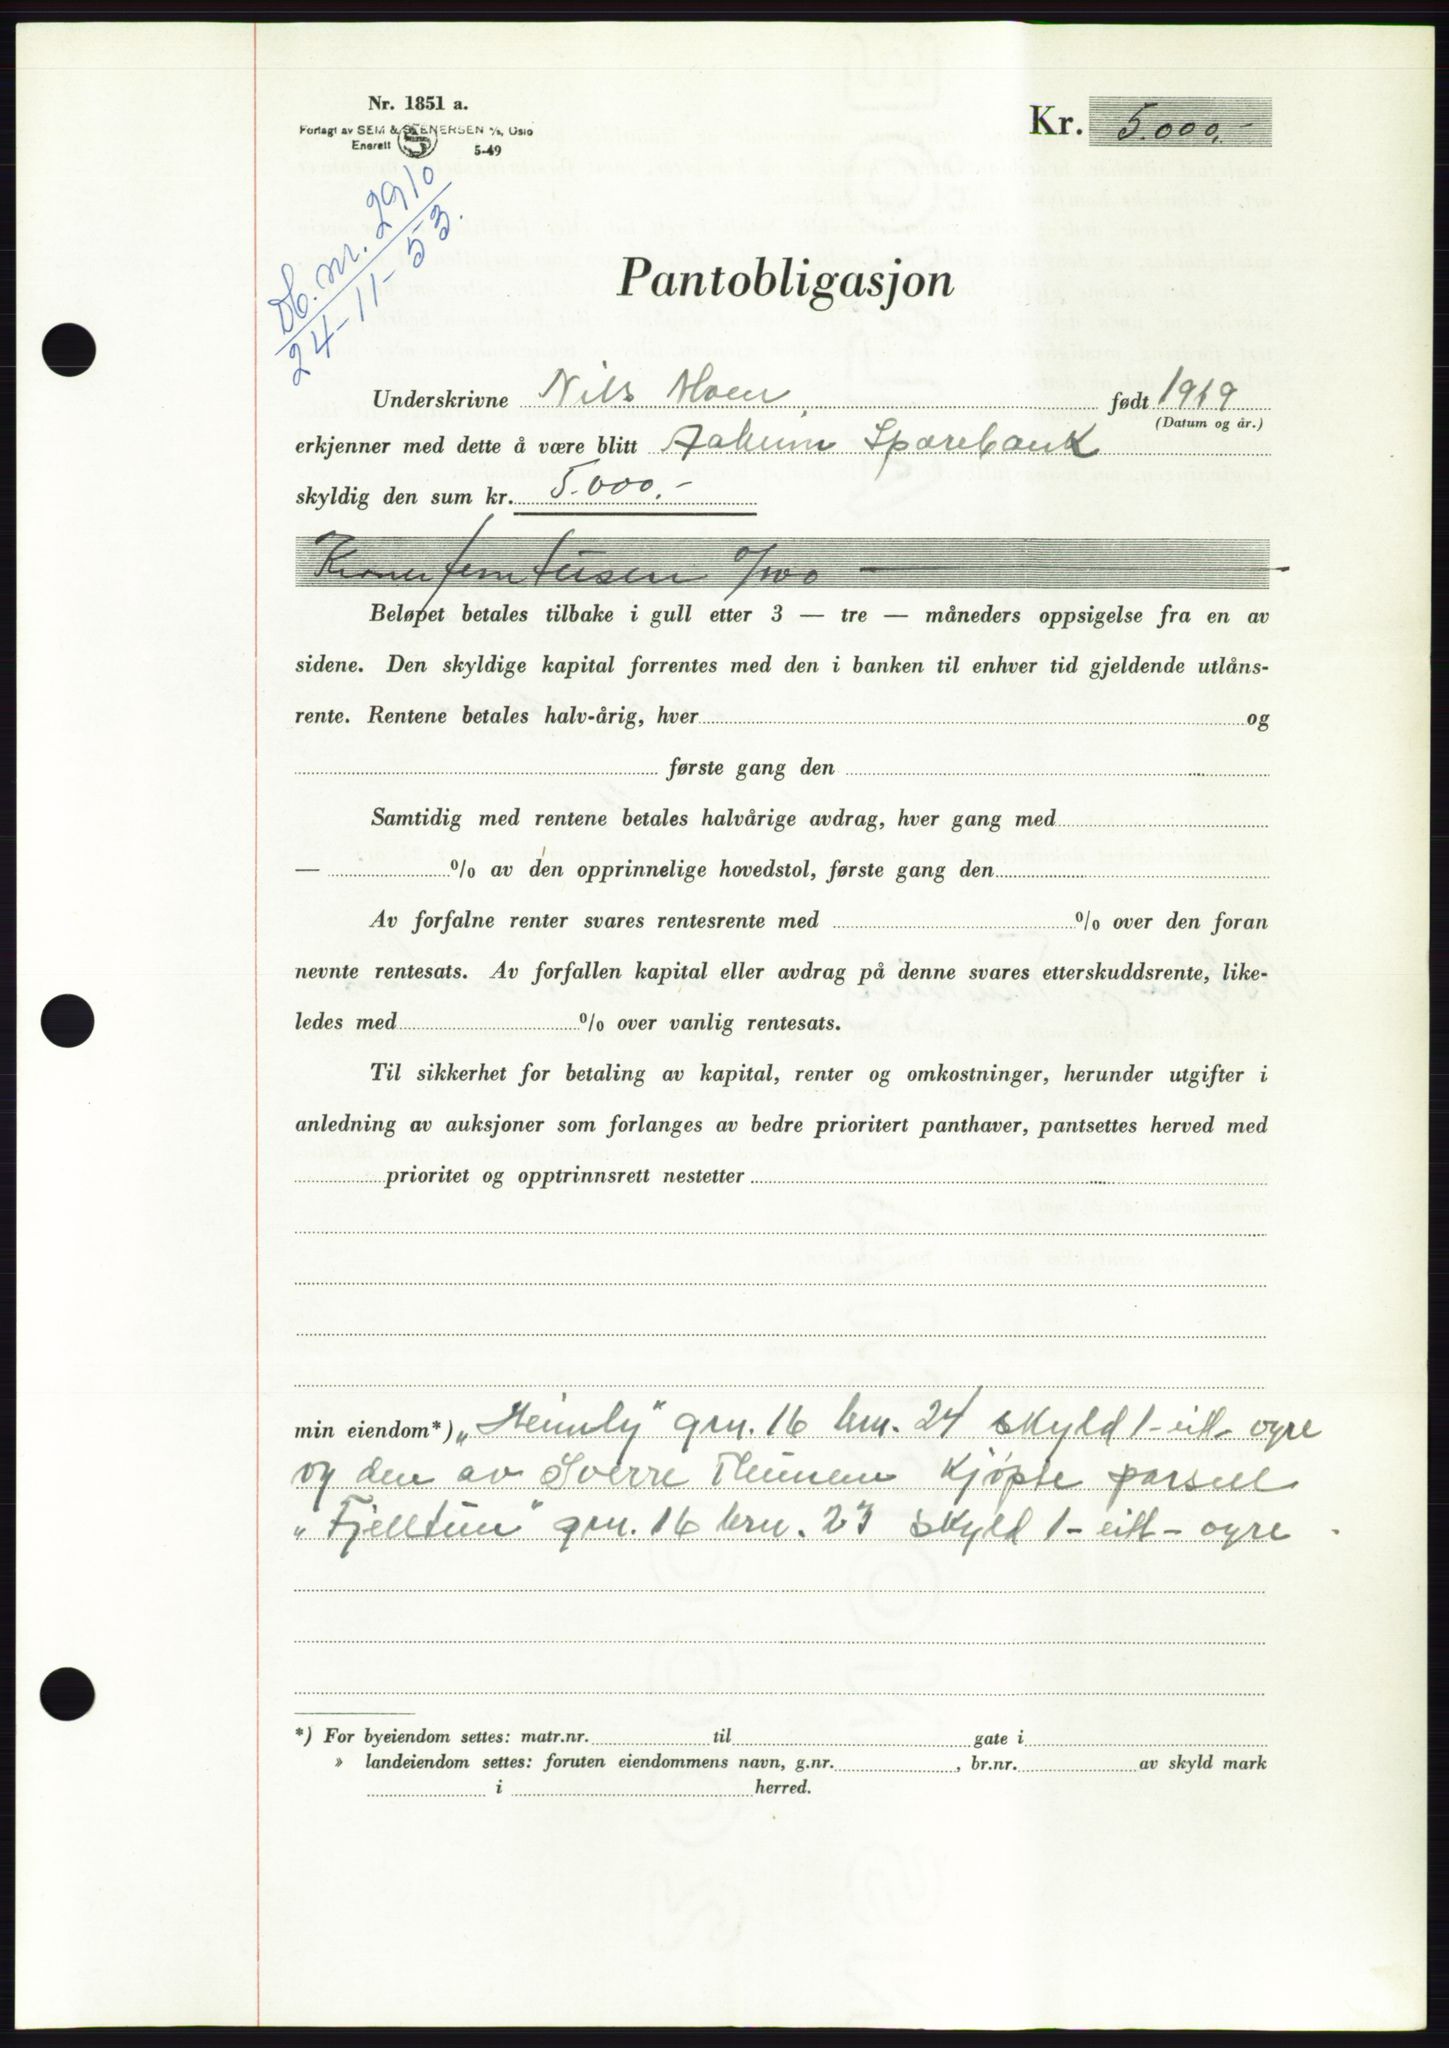 Nr. 1851 a.
Forlagt av SEM & STENERSEN A/S, Oslo
Enerett S 5-49
Kr. 5.000,-
Db. nr. 2910
24-11-53.
Pantobligasjon
Underskrivne Nils Moen, født 1919
(Datum og år.)
erkjenner med dette å være blitt Aaheim Sparebank
skyldig den sum kr. 5.000.-
Kroner femtusen 0/100
Beløpet betales tilbake i gull etter 3 — tre — måneders oppsigelse fra en av
sidene. Den skyldige kapital forrentes med den i banken til enhver tid gjeldende utlåns-
rente. Rentene betales halv-årig, hver og
første gang den
Samtidig med rentene betales halvårige avdrag, hver gang med
— % av den opprinnelige hovedstol, første gang den
Av forfalne renter svares rentesrente med % over den foran
nevnte rentesats. Av forfallen kapital eller avdrag på denne svares etterskuddsrente, like-
ledes med % over vanlig rentesats.
Til sikkerhet for betaling av kapital, renter og omkostninger, herunder utgifter i
anledning av auksjoner som forlanges av bedre prioritert panthaver, pantsettes herved med
prioritet og opptrinnsrett nestetter
min eiendom*) „Heimly" grn. 16 brn. 24 skyld 1-eitt- øyre
og den av Sverre kjøpte parsell
„Fjelltun" grn. 16 brn. 23 skyld 1- eitt - øyre
*) For byeiendom settes: matr.nr. til gate i
» landeiendom settes: foruten eiendommens navn, g.nr. , br.nr. av skyld mark
i herred.